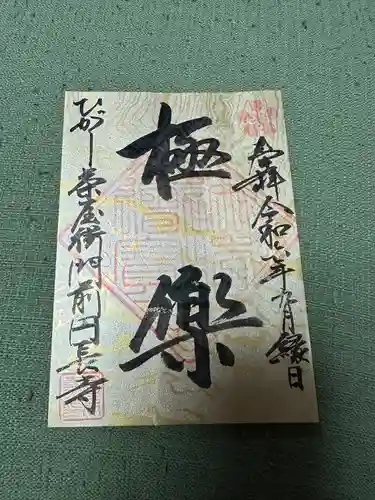 奉拝 令和六年六月縁日
極樂
ひがし茶屋街門前 円長寺